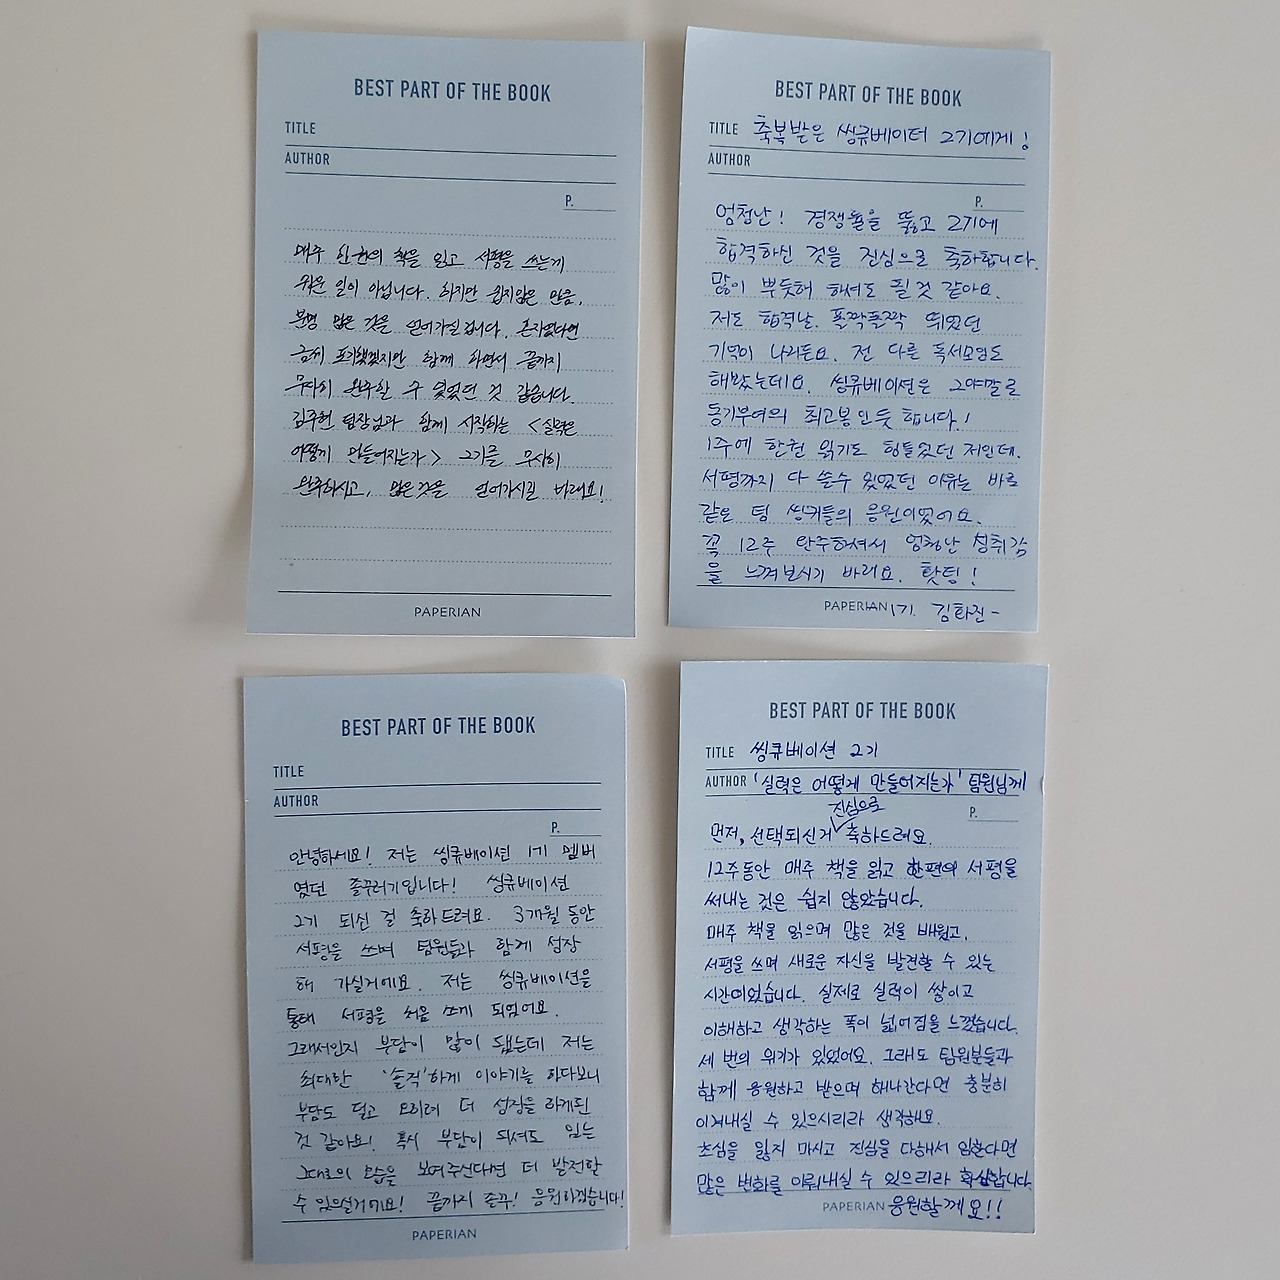 BEST PART OF THE BOOK
TITLE
AUTHOR
P.
매주 한권의 책을 읽고 서평을 쓰는게
쉬운 일이 아닙니다. 하지만 쉽지않은 만큼,
분명 많은 것을 얻어가실겁니다. 혼자였다면
금새 포기했겠지만 함께 하면서 끝까지
무사히 완주할 수 있었던 것 같습니다.
김주현 팀장님과 함께 시작하는 <실력은
어떻게 만들어지는가> 2기를 무사히
완주하시고, 많은것을 얻어가시길 바래요!
PAPERIAN
BEST PART OF THE BOOK
TITLE 축복받은 씽큐베이터 2기에게!
AUTHOR
P.
엄청난! 경쟁률을 뚫고 2기에
합격하신 것을 진심으로 축하합니다.
많이 뿌듯해 하셔도 될것 같아요.
저도 합격날 폴짝폴짝 뛰었던
기억이 나거든요. 전 다른 독서모임도
해봤는데요. 씽큐베이션은 그야말로
동기부여의 최고봉인듯 합니다!
1주에 한권 읽기도 힘들었던 저인데.
서평까지 다 쓸수 있었던 이유는 바로
같은 팀 씽커들의 응원이었어요.
꼭 12주 완주하셔서 엄청난 성취감
을 느껴보시기 바래요. 홧팅!
PAPERIAN 1기 김화진-
BEST PART OF THE BOOK
TITLE
AUTHOR
P.
안녕하세요! 저는 씽큐베이션 1기 멤버
였던 졸꾸러기입니다! 씽큐베이션
2기 되신 걸 축하드려요. 3개월 동안
서평을 쓰며 팀원들과 함께 성장
해 가실거에요. 저는 씽큐베이션을
통해 서평을 처음 쓰게 되었어요.
그래서인지 부담이 많이 됐는데 저는
최대한 '솔직'하게 이야기를 하다보니
부담도 덜고 오히려 더 성장을 하게된
것 같아요! 혹시 부담이 되셔도 있는
그대로의 모습을 보여주신다면 더 발전할
수 있으실거에요! 끝까지 졸꾸! 응원하겠습니다!
PAPERIAN
BEST PART OF THE BOOK
TITLE 씽큐베이션 2기
AUTHOR '실력은 어떻게 만들어지는가' 팀원님께
P.
진심으로
먼저, 선택되신거 축하드려요.
12주동안 매주 책을 읽고 한편의 서평을
써내는 것은 쉽지 않았습니다.
매주 책을 읽으며 많은 것을 배웠고,
서평을 쓰며 새로운 자신을 발견할 수 있는
시간이었습니다. 실제로 실력이 쌓이고
이해하고 생각하는 폭이 넓어짐을 느꼈습니다.
세 번의 위기가 있었어요. 그래도 팀원분들과
함께 응원하고 받으며 해나간다면 충분히
이겨내실 수 있으시리라 생각해요.
초심을 잃지 마시고 진심을 다해서 임한다면
많은 변화를 이뤄내실 수 있으리라 확신합니다.
PAPERIAN 응원할께요!!